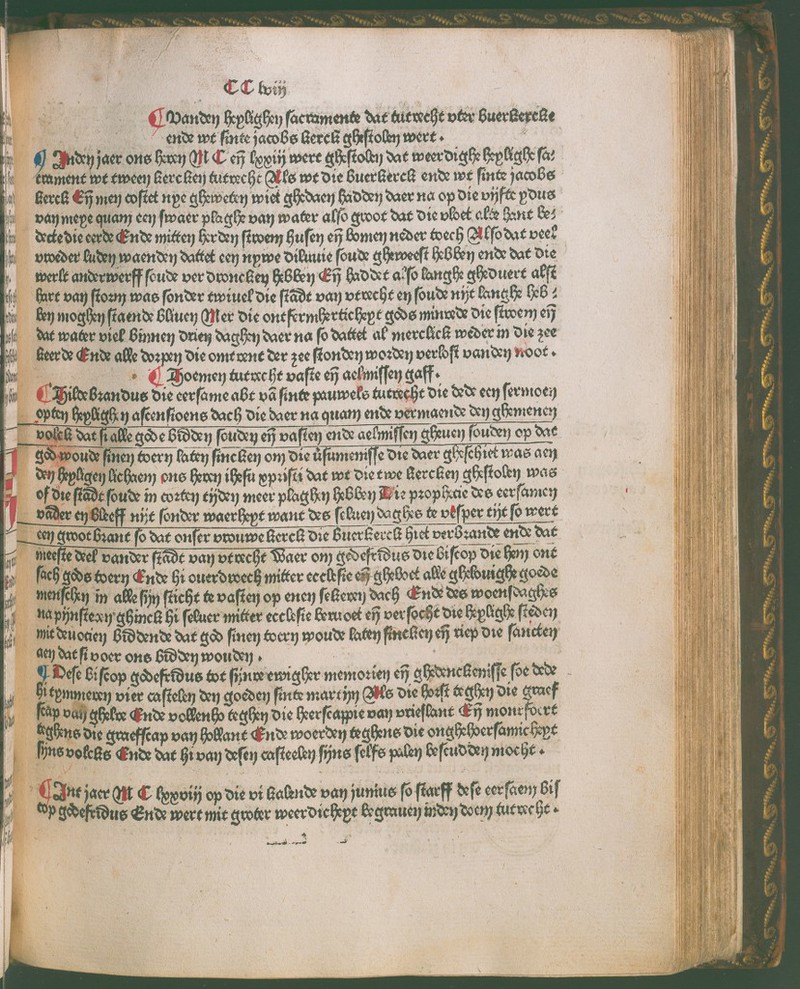 CC lviij
Vanden heylighen sacramente dat tutrecht vter buerkercke
ende wt sinte jacobs kerck ghestolen wert.
Inden jaer ons heren M C eñ lxxiij wert ghestolen dat weerdighe heylighe sa⸗
crament wt tween kercken tutrecht Als wt die buerkerck ende wt sinte jacobs
kerck Eñ men costet nye gheweten wiet ghedaen hadden daer na op die vijfte ydus
van meye quam een swaer plaghe van water also groot dat die vloet alte hant be⸗
decte die eerde Ende mitten herden stroem husen eñ bomen neder toech Also dat veel
vroeder luden waenden dattet een nywe diluuie soude gheweest hebben ende dat die
werlt anderwerff soude verdroncken hebben Eñ haddet also langhe gheduert alst
hart van storm was sonder twiuel die stadt van vtrecht en soude nijt langhe heb⸗
ben moghen staende bliuen Mer die ontfermherticheyt gods minrede die stroem eñ
dat water viel binnen drien daghen daer na so dattet al merclick weder in die zee
keerde Ende alle dorpen die omtrent der zee stonden worden verlost vanden noot.
Hoemen tutrecht vaste eñ aelmissen gaff.
Hildebrandus die eersame abt vā sinte pauwels tutrecht die dede een sermoen
opten heylighen ascensioens dach die daer na quam ende vermaende den ghemenen
volck dat si alle gode bidden souden eñ vasten ende aelmissen gheuen souden op dat
god woude sinen toern laten sincken om die v̄sumenisse die daer gheschiet was aen
den heyligen lichaem ons heren ihesu xpristi dat wt die twe kercken ghestolen was
of die stadt soude in corten tijden meer plaghen hebben Die prophecie des eersamen
vader en bleeff nijt sonder waerheyt want des seluen daghes te vesper tijt so wert
een groot brant so dat onser vrouwe kerck die buerkerck hiet verbrande ende dat
meeste deel vander stadt van vtrecht Waer om godefridus die biscop die hem ont
sach gods toern Ende hi ouerdroech mitter ecclesie eñ gheboet alle ghelouighe goede
menschen in alle sijn sticht te vasten op enen sekeren dach Ende des woensdaghes
na pijnsteren ghinck hi seluer mitter ecclesie beruoet eñ versocht die heylighe steden
mit deuocien biddende dat god sinen toern woude laten sincken eñ riep die sancten
aen dat si voer ons bidden wouden.
Dese biscop godefridus tot sijnre ewigher memorien eñ ghedenckenisse soe dede
hi tymmeren vier castelen den goeden sinte martijn Als die horst teghen die graef
scap van ghelre Ende vollenho teghen die heerscappie van vrieslant Eñ montfoert
teghens die graefscap van hollant Ende woerden teghens die onghehoersamicheyt
sijns volcks Ende dat hi van desen casteelen sijns selfs palen bescudden mocht.
Int jaer M C lxxviij op die vi kalende van junius so starff dese eersaem bis
cop godefridus Ende wert mit groter weerdicheyt begrauen inden doem tutrecht.